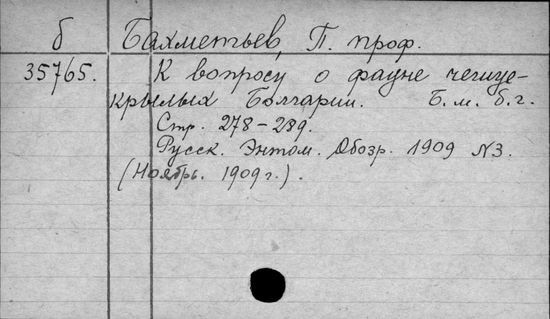 б Бахметьев, П. проф.
35765. К вопросу о фауне чешуе-
крылых Болгарии. Б. м. б. г.
Стр. 278-289.
Русск. Энтом. Обозр. 1909 N3.
(Ноябрь. 1909 г.).